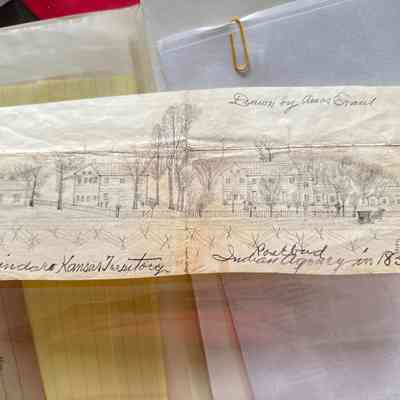 Drawn by Amos
indaro Kansas Territory
Rosebud
Indian Agency in 183